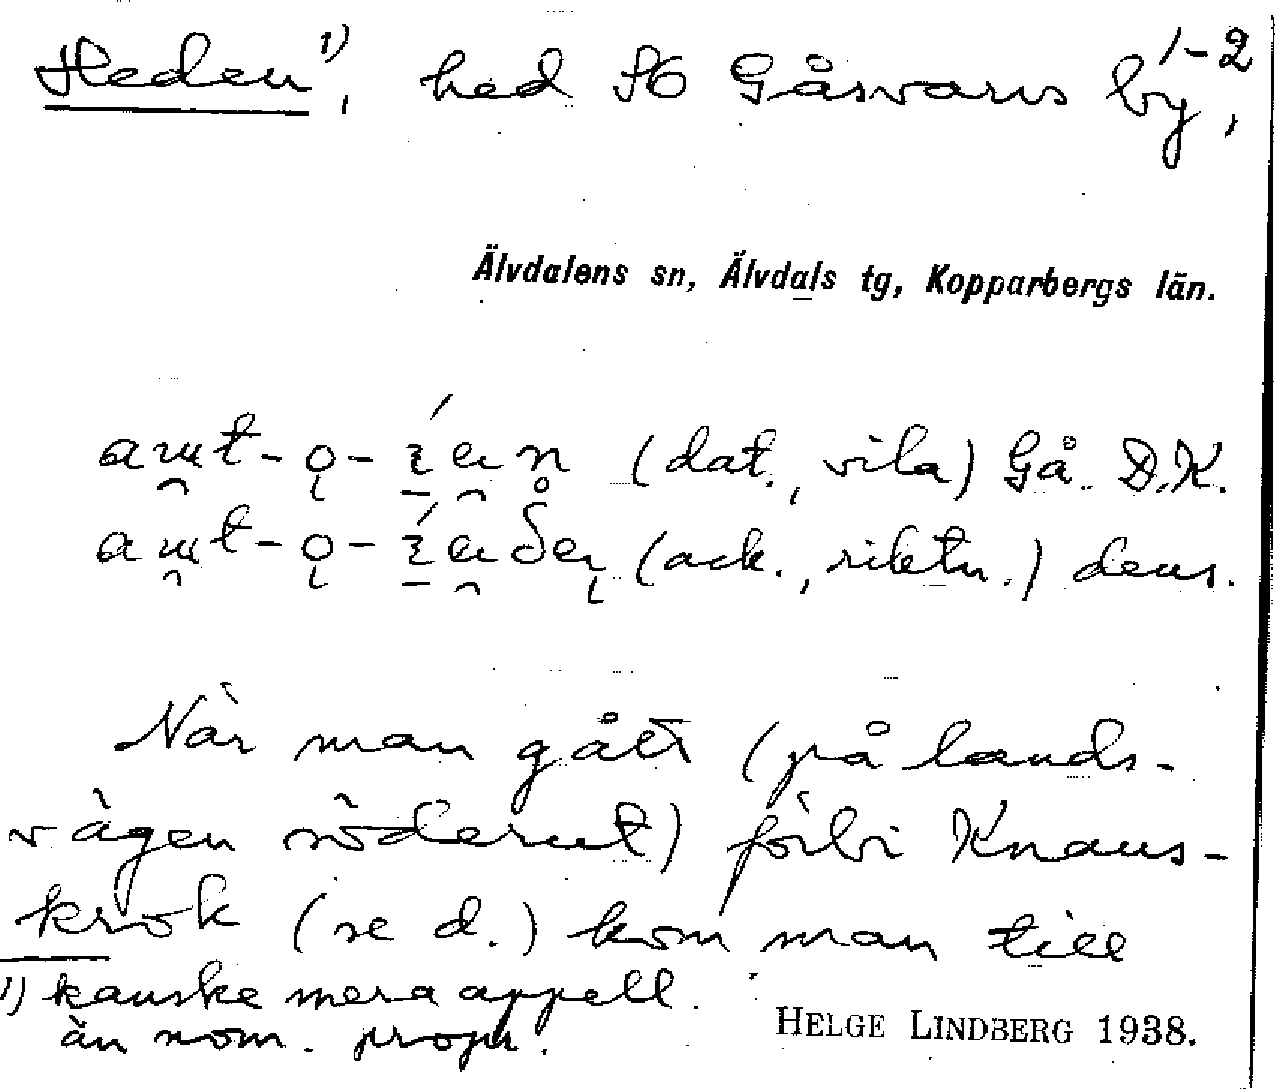 Heden¹⁾, hed SO Gåsvarvs by, 1-2
Älvdalens sn, Älvdals tg, Kopparbergs län.
(dat., vila) Gå. D.K.
(ack., riktn.) dens.
När man gått (på lands-
vägen söderut) förbi Knaus-
krok (se d.) kom man till
1) kanske mera appell.
än nom. propr.
HELGE LINDBERG 1938.